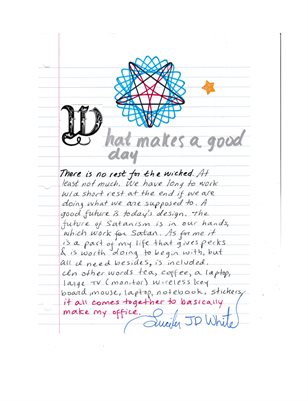 What makes a good
day
There is no rest for the wicked. At
least not much. We have long to work
w/a short rest at the end if we are
doing what we are supposed to. A
good future is today's design. The
future of Satanism is in our hands,
which work for Satan. As for me it
is a part of my life that gives perks
& is worth doing to begin with, but
all I need besides, is included.
In other words tea, coffee, a laptop,
large TV (monitor) wireless key
board, mouse, laptop, notebook, stickers
it all comes together to basically
make my office.
JD White